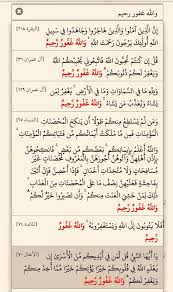 والله غفور رحيم
إِنَّ الَّذِينَ آمَنُوا وَالَّذِينَ هَاجَرُوا وَجَاهَدُوا فِي سَبِيلِ البقرة ٢١٨
اللَّهِ أُولَٰئِكَ يَرْجُونَ رَحْمَتَ اللَّهِ ۚ وَاللَّهُ غَفُورٌ رَحِيمٌ
قُلْ إِنْ كُنْتُمْ تُحِبُّونَ اللَّهَ فَاتَّبِعُونِي يُحْبِبْكُمُ اللَّهُ آل عمران ٣١
وَيَغْفِرْ لَكُمْ ذُنُوبَكُمْ ۗ وَاللَّهُ غَفُورٌ رَحِيمٌ
وَلِلَّهِ مَا فِي السَّمَاوَاتِ وَمَا فِي الْأَرْضِ ۚ يَغْفِرُ لِمَنْ آل عمران ١٢٩
يَشَاءُ وَيُعَذِّبُ مَنْ يَشَاءُ ۚ وَاللَّهُ غَفُورٌ رَحِيمٌ
وَمَنْ لَمْ يَسْتَطِعْ مِنْكُمْ طَوْلًا أَنْ يَنْكِحَ الْمُحْصَنَاتِ النساء ٢٥
الْمُؤْمِنَاتِ فَمِنْ مَا مَلَكَتْ أَيْمَانُكُمْ مِنْ فَتَيَاتِكُمُ الْمُؤْمِنَاتِ
وَاللَّهُ أَعْلَمُ بِإِيمَانِكُمْ ۚ بَعْضُكُمْ مِنْ بَعْضٍ ۚ فَانْكِحُوهُنَّ
بِإِذْنِ أَهْلِهِنَّ وَآتُوهُنَّ أُجُورَهُنَّ بِالْمَعْرُوفِ مُحْصَنَاتٍ غَيْرَ
مُسَافِحَاتٍ وَلَا مُتَّخِذَاتِ أَخْدَانٍ ۚ فَإِذَا أُحْصِنَّ فَإِنْ أَتَيْنَ
بِفَاحِشَةٍ فَعَلَيْهِنَّ نِصْفُ مَا عَلَى الْمُحْصَنَاتِ مِنَ الْعَذَابِ
ذَٰلِكَ لِمَنْ خَشِيَ الْعَنَتَ مِنْكُمْ ۚ وَأَنْ تَصْبِرُوا خَيْرٌ لَكُمْ ۗ وَاللَّهُ غَفُورٌ
رَحِيمٌ
أَفَلَا يَتُوبُونَ إِلَى اللَّهِ وَيَسْتَغْفِرُونَهُ ۚ وَاللَّهُ غَفُورٌ المائدة ٧٤
رَحِيمٌ
يَا أَيُّهَا النَّبِيُّ قُلْ لِمَنْ فِي أَيْدِيكُمْ مِنَ الْأَسْرَىٰ إِنْ الأنفال ٧٠
يَعْلَمِ اللَّهُ فِي قُلُوبِكُمْ خَيْرًا يُؤْتِكُمْ خَيْرًا مِمَّا أُخِذَ مِنْكُمْ
وَيَغْفِرْ لَكُمْ ۗ وَاللَّهُ غَفُورٌ رَحِيمٌ